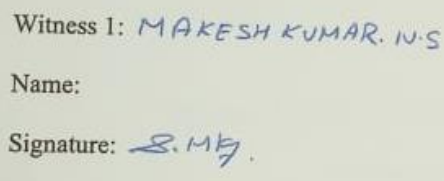 Witness 1: MAKESH KUMAR. N.S
Name:
Signature: